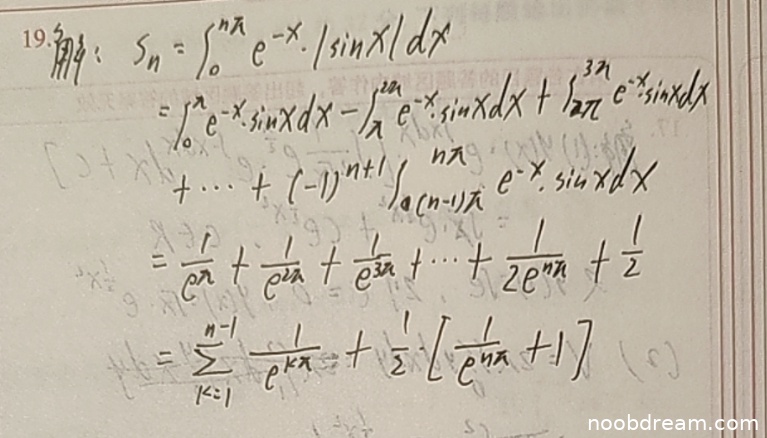 19. 解: Sₙ = ∫₀^{nπ} e^{-x}·|sinx|dx
= ∫₀^{π} e^{-x}·sinxdx − ∫_{π}^{2π} e^{-x}·sinxdx + ∫_{2π}^{3π} e^{-x}·sinxdx
+ ⋯ + (-1)^{n+1} ∫_{(n-1)π}^{nπ} e^{-x}·sinxdx
= 1/e^{π} + 1/e^{2π} + 1/e^{3π} + ⋯ + 1/2e^{nπ} + 1/2
= ∑_{k=1}^{n-1} 1/e^{kπ} + 1/2 [1/e^{nπ} + 1]
noobdream.com